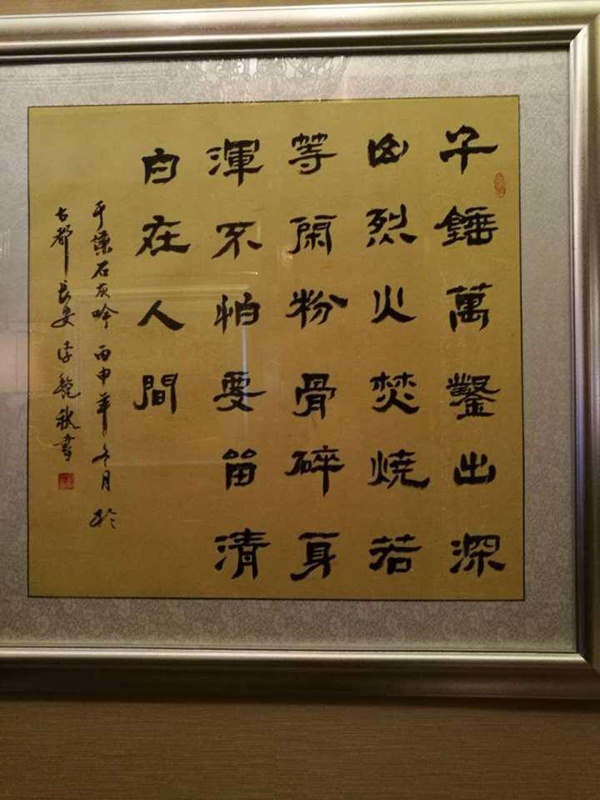 千錘萬鑿出深
山烈火焚燒若
等閑粉骨碎身
渾不怕要留清
白在人間
于謙石灰吟 丙申年冬月於
古都長安 李秋書